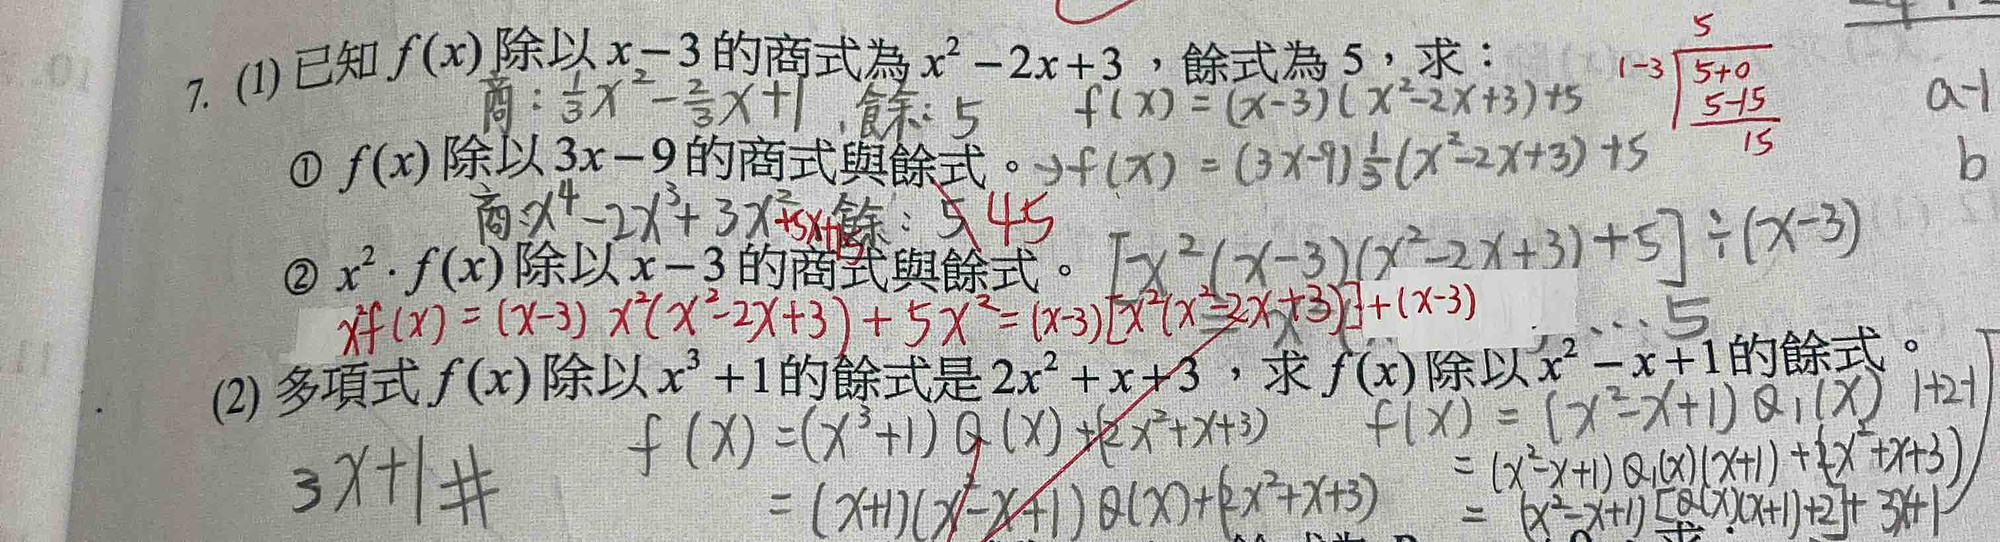 7. (1) 已知 f(x) 除以 x－3 的商式為 x²－2x＋3，餘式為 5，求：
商：1/3x²－2/3x＋1，餘：5
f(x)＝(x-3)(x²-2x+3)+5
5
1-3 5+0
5-15
15
a-1
b
① f(x) 除以 3x－9 的商式與餘式。
→f(x)＝(3x-9)1/3(x²-2x+3)+5
商：x⁴－2x³＋3x²+5x+15 餘：5 45
② x²·f(x) 除以 x－3 的商式與餘式。
[x²(x-3)(x²-2x+3)+5]÷(x-3)
x²f(x)＝(x-3) x²(x²-2x+3)＋5x²＝(x-3)[x²(x²-2x+3)]+(x-3)
…5
(2) 多項式 f(x) 除以 x³＋1 的餘式是 2x²＋x＋3，求 f(x) 除以 x²－x＋1 的餘式。
3x+1#
f(x)＝(x³+1)Q(x)+(2x²+x+3)
＝(x+1)(x²-x+1)Q(x)+(2x²+x+3)
f(x)＝(x²-x+1)Q₁(x)
1+2-1
＝(x²-x+1)Q₁(x)(x+1)+(2x²+x+3)
＝(x²-x+1)[Q(x)(x+1)+2]+3x+1